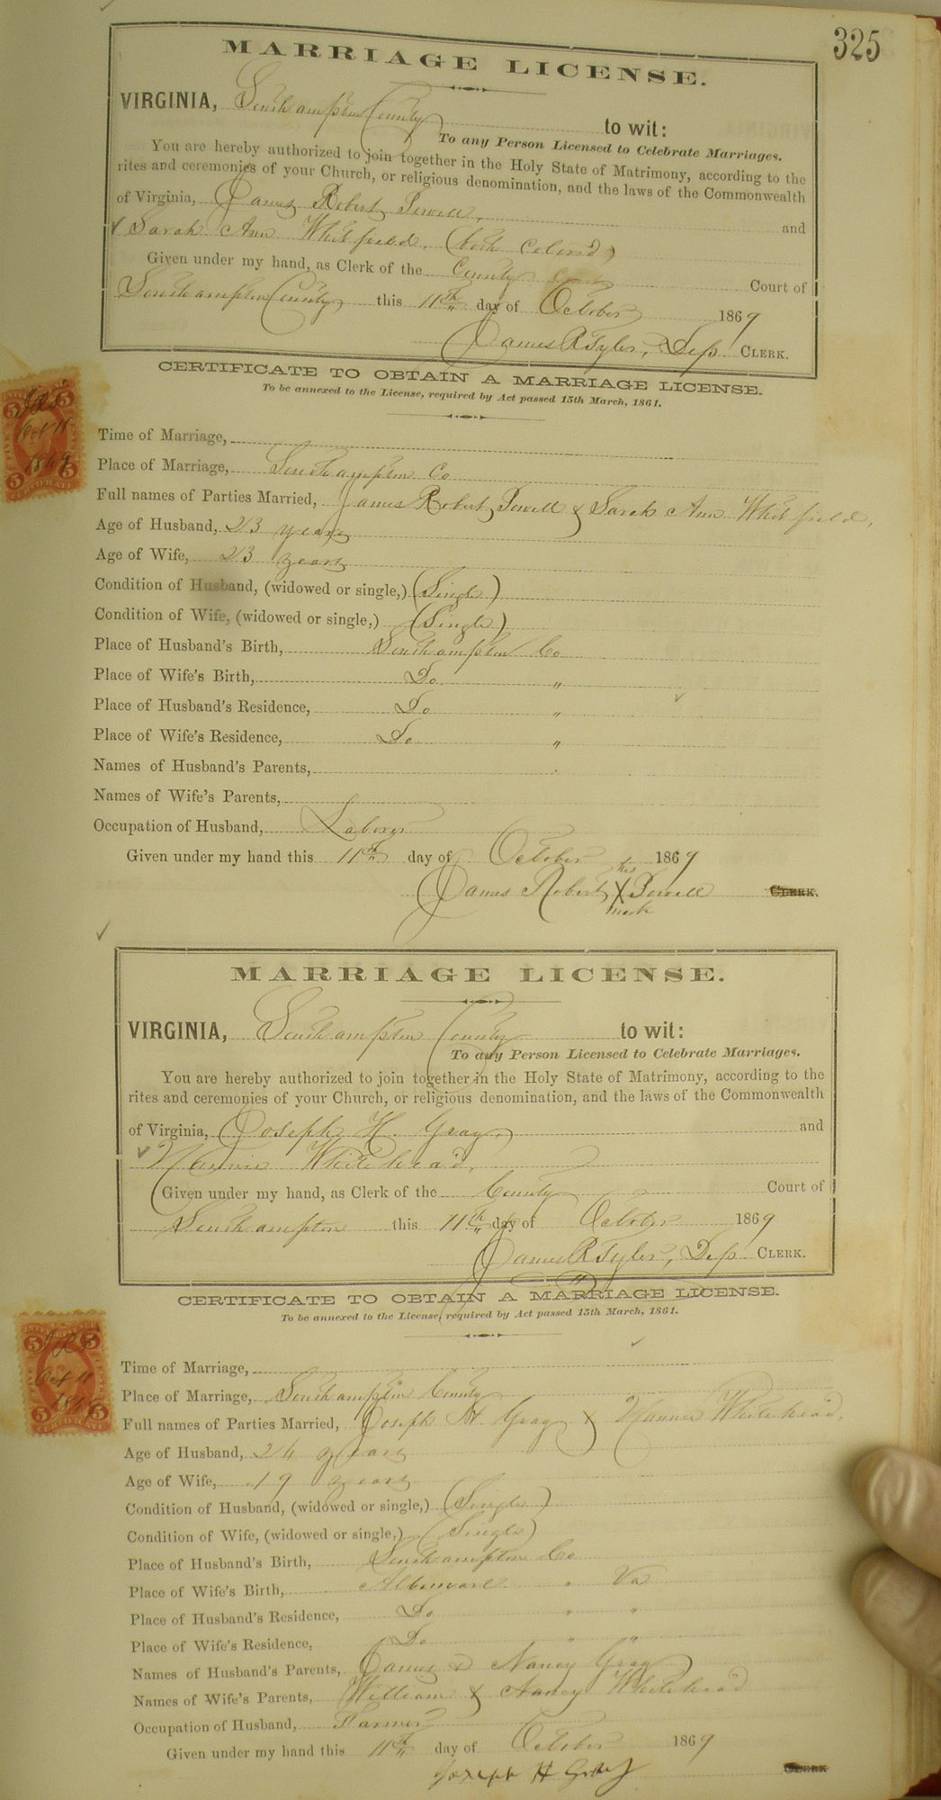 325
MARRIAGE LICENSE.
VIRGINIA, Southampton County to wit:
To any Person Licensed to Celebrate Marriages.
You are hereby authorized to join together in the Holy State of Matrimony, according to the
rites and ceremonies of your Church, or religious denomination, and the laws of the Commonwealth
of Virginia, James Robert Powell, and
✓ Sarah Ann Whitfield. (both colored)
Given under my hand, as Clerk of the County Court of
Southampton County this 11th day of October 1869
James R Tyler, Dep. CLERK.
CERTIFICATE TO OBTAIN A MARRIAGE LICENSE.
To be annexed to the License, required by Act passed 15th March, 1861.
Time of Marriage,
Place of Marriage, Southampton Co
Full names of Parties Married, James Robert Powell & Sarah Ann Whitfield.
Age of Husband, 23 years
Age of Wife, 23 years
Condition of Husband, (widowed or single,) (Single)
Condition of Wife, (widowed or single,) (Single)
Place of Husband's Birth, Southampton Co
Place of Wife's Birth, Do "
Place of Husband's Residence, Do "
Place of Wife's Residence, Do "
Names of Husband's Parents,
Names of Wife's Parents,
Occupation of Husband, Laborer
Given under my hand this 11th day of October 1869
his
James Robert X Powell CLERK.
mark
MARRIAGE LICENSE.
VIRGINIA, Southampton County to wit:
To any Person Licensed to Celebrate Marriages.
You are hereby authorized to join together in the Holy State of Matrimony, according to the
rites and ceremonies of your Church, or religious denomination, and the laws of the Commonwealth
of Virginia, Joseph H. Gray, and
✓ Nannie Whitehead.
Given under my hand, as Clerk of the County Court of
Southampton this 11th day of October 1869
James R Tyler, Dep CLERK.
CERTIFICATE TO OBTAIN A MARRIAGE LICENSE.
To be annexed to the License, required by Act passed 15th March, 1861.
Time of Marriage,
Place of Marriage, Southampton County
Full names of Parties Married, Joseph H. Gray & Nannie Whitehead.
Age of Husband, 24 years
Age of Wife, 19 years
Condition of Husband, (widowed or single,) (Single)
Condition of Wife, (widowed or single,) (Single)
Place of Husband's Birth, Southampton Co
Place of Wife's Birth, Albemarle " Va
Place of Husband's Residence, Do " "
Place of Wife's Residence, Do " "
Names of Husband's Parents, James & Nancy Gray
Names of Wife's Parents, William & Nancy Whitehead
Occupation of Husband, Farmer
Given under my hand this 11th day of October 1869
Joseph H Gray CLERK